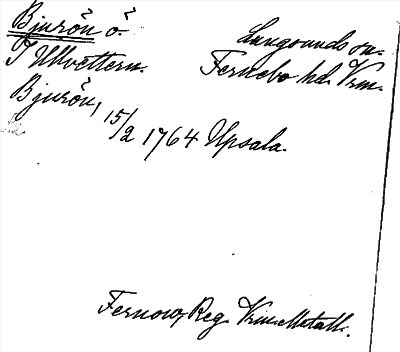 Bjurön ö.
I Ullvettern.
Långsunds sn.
Fernebo hd. Vrm.
Bjurön, 15/2 1764 Upsala.
Fernow, Reg. Vrm.